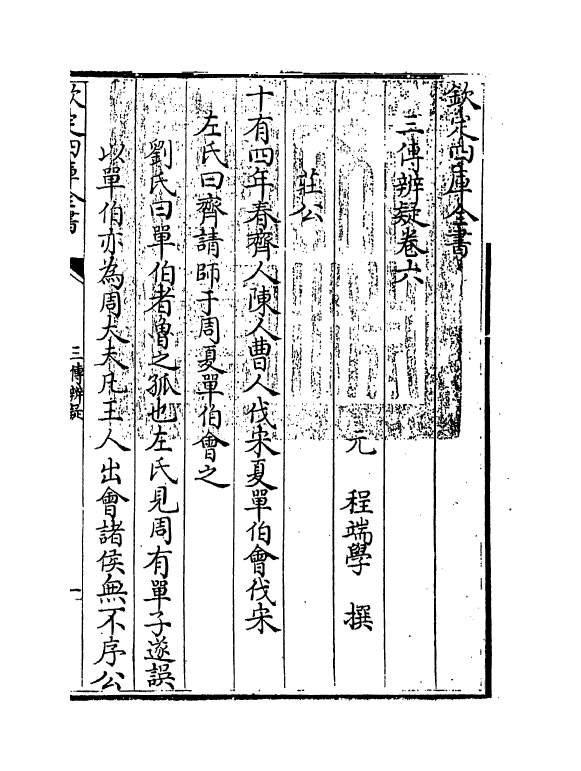 欽定四庫全書
三傳辨疑卷六
元 程端學 撰
莊公
十有四年春齊人陳人曹人伐宋夏單伯會伐宋
左氏曰齊請師于周夏單伯會之
劉氏曰單伯者魯之孤也左氏見周有單子遂誤
以單伯亦為周大夫凡王人出會諸侯無不序公
欽定四庫全書
三傳辨疑
一